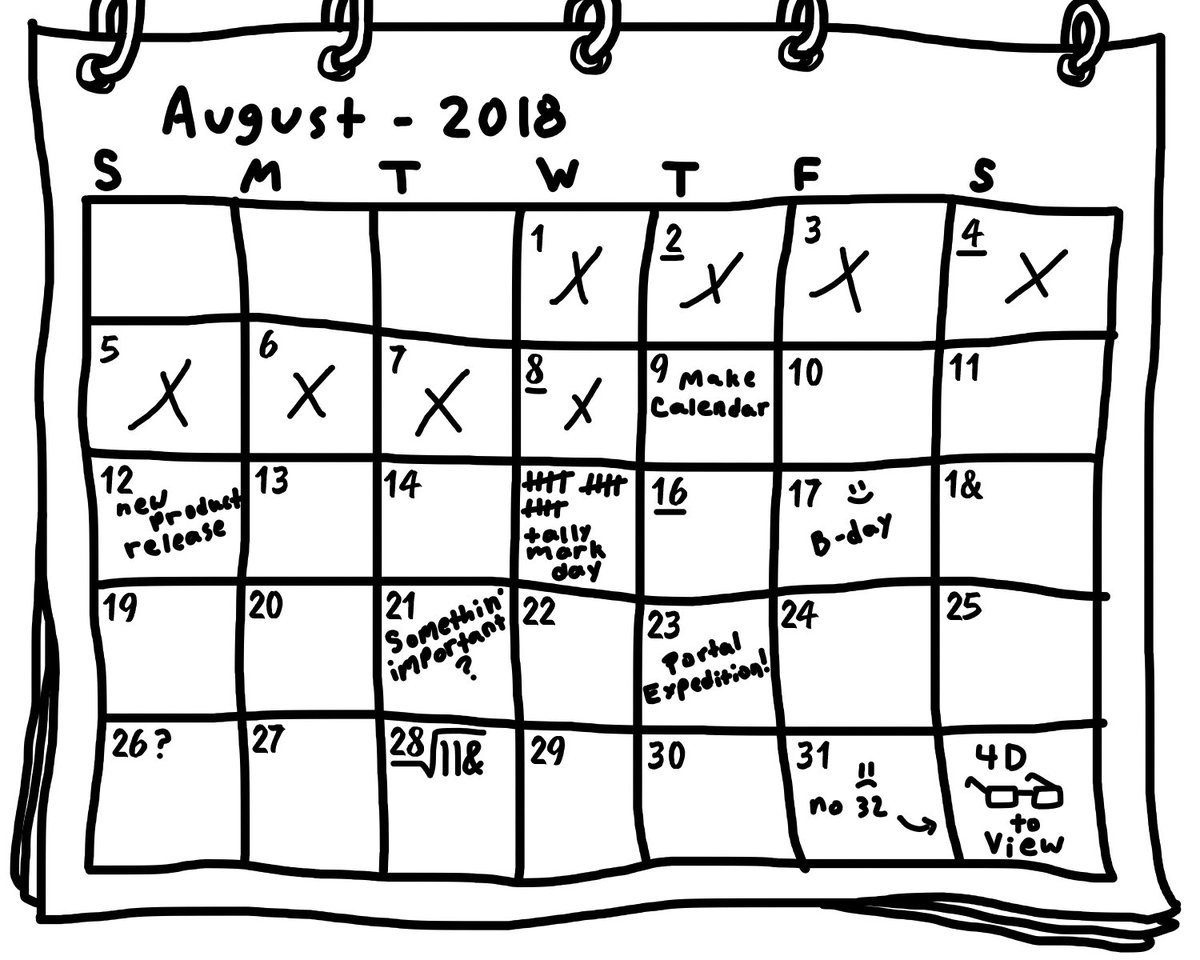 August - 2018
S M T W T F S
1 X 2 X 3 X 4 X
5 X 6 X 7 X 8 X 9 Make Calendar 10 11
12 new product release 13 14 tally mark day 16 17 B-day 1&
19 20 21 Somethin' important? 22 23 Portal Expedition! 24 25
26? 27 28√11& 29 30 31 no 32 4D to View